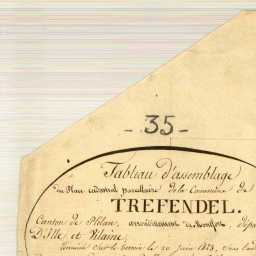 - 35 -
Tableau d'assemblage
du Plan cadastral parcellaire de la Commune de
TREFENDEL.
Canton de Plélan, arrondissement de Montfort, dépa
D'Ille et Vilaine,
terminé sur le terrein le 20 juin 1823, sous l'ad